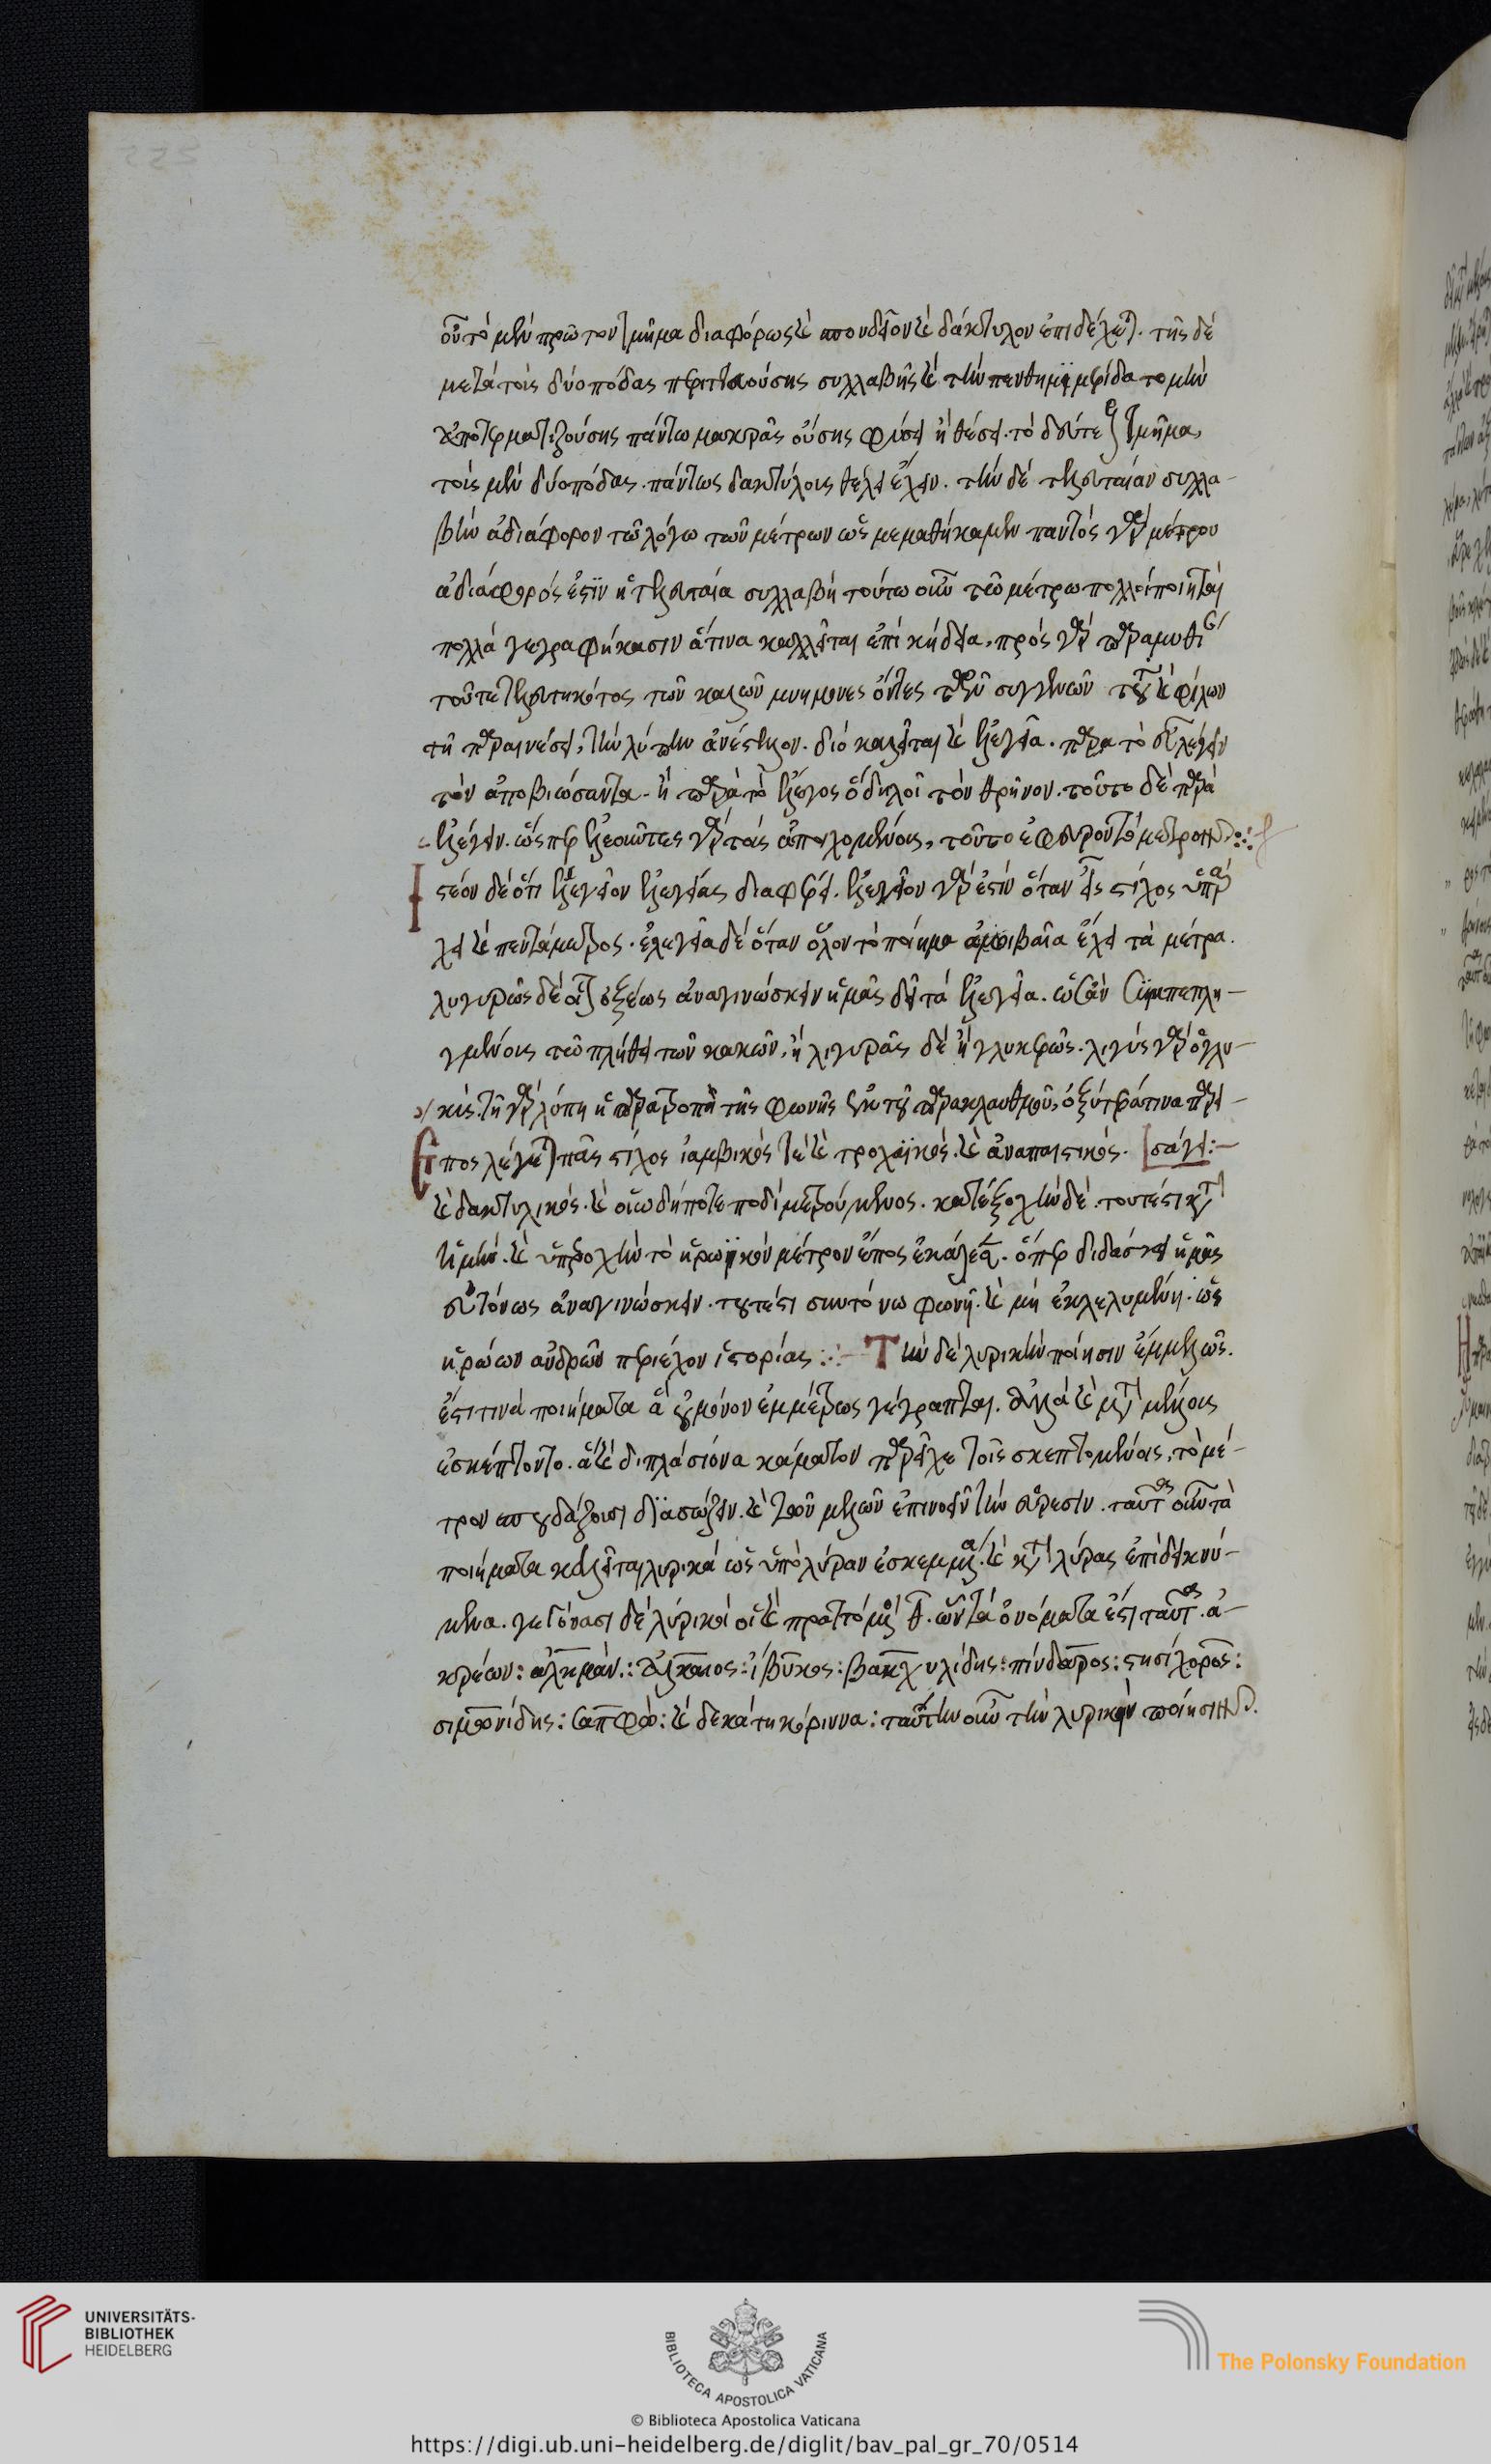 οὖν τὸ μὲν πρῶτον τμῆμα διαφόρως καὶ σπονδεῖον καὶ δάκτυλον ἐπιδέχεται. τῆς δὲ
μετὰ τοὺς δύο πόδας περιττευούσης συλλαβῆς καὶ τὴν πενθημιμερίδα τομὴν
ἀποτερματιζούσης πάντως μακρᾶς οὔσης φύσει ἢ θέσει. τὸ δεύτερον τμῆμα,
τοὺς μὲν δύο πόδας πάντως δακτύλους θέλει ἔχειν. τὴν δὲ τελευταίαν συλλα-
βὴν ἀδιάφορον τῶ λόγω τῶν μέτρων ὡς μεμαθήκαμεν παντὸς γὰρ μέτρου
ἀδιάφορός ἐστιν ἡ τελευταία συλλαβή τούτω οὖν τῶ μέτρω πολλοὶ ποιηταὶ
πολλὰ γεγραφήκασιν ἅτινα καλεῖται ἐπικήδεια, πρὸς γὰρ παραμυθί
τοῦ τετελευτηκότος τῶν καλῶν μνήμονες ὄντες
τῆ παραινέσει, τὴν λύπην ἀνέστελλον. διὸ καλεῖται καὶ ἐλεγεῖα. παρὰ τὸ εὖ λέγειν
τὸν ἀποβιώσαντα. ἢ παρὰ τὸ ἔλεγος ὃ δηλοῖ τὸν θρῆνον. τοῦτο δὲ παρὰ
ἐλέγειν. ὥσπερ ἐλεοῦντες γὰρ τοὺς ἀποιχομένους, τοῦτο ἐφεύροντο μέτρον
Ἰστέον δὲ ὅτι ἐλεγεῖον ἐλεγείας διαφέρει. ἐλεγεῖον γάρ ἐστιν ὅταν εἷς στίχος ὑπάρ
χει καὶ πεντάμετρος. ἐλεγεῖα δὲ ὅταν ὅλον τὸ ποίημα ἀμοιβαῖα ἔχει τὰ μέτρα.
λιγυρῶς δὲ ἀντὶ ὀξέως ἀναγινώσκειν ἡμᾶς δεῖ τὰ ἐλεγεῖα. ὡσὰν ἐκπεπλη-
γμένους τῶ πλήθει τῶν κακῶν, ἢ λιγυρᾶς δὲ ἢ γλυκερῶς. λιγὺς γὰρ ὁ γλυ-
κύς. τῆ γὰρ λύπη ἡ παρατροπὴ τῆς φωνῆς ἐκ τοῦ παρακλαυθμοῦ, ὀξύτερά τινα παρει-
Ἔπος λέγεται πᾶς στίχος ἰαμβικός τε καὶ τροχαϊκός. καὶ ἀναπαιστικός. [σάγει:—
καὶ δακτυλικός. καὶ οἵω δήποτε ποδὶ μετρούμενος. κατ' ἐξοχὴν δὲ. τουτέστι κατὰ
τιμὴν. καὶ ὑπεροχὴν τὸ ἡρωϊκὸν μέτρον ἔπος ἐκάλεσαν. ὅπερ διδάσκει ἡμᾶς
εὐτόνως ἀναγινώσκειν. τουτέστι συντόνω φωνῆ. καὶ μὴ ἐκλελυμένη. ὡς
ἡρώων ἀνδρῶν περιέχον ἱστορίας :— Τὴν δὲ λυρικὴν ποίησιν ἐμμελῶς.
ἔστι τινὰ ποιήματα ἃ οὐ μόνον ἐμμέτρως γέγραπται. ἀλλὰ καὶ μετὰ μέλους
ἐσκέπτοντο. ἃ καὶ διπλασίονα κάματον παρεῖχε τοῖς σκεπτομένοις, τὸ μέ-
τρον σπουδάζουσι διασώζειν. καὶ τῶν μελῶν ἐπινοεῖν τὴν εὕρεσιν. ταῦτα οὖν τὰ
ποιήματα καλεῖται λυρικά ὡς ὑπὸ λύραν ἐσκεμμένα. καὶ μετὰ λύρας ἐπιδεικνύ-
μενα. γεγόνασι δὲ λυρικοὶ οἱ καὶ πραττόμενοι θ. ὧν τὰ ὀνόματα ἐστι ταῦτα. ἀ-
κρέων: ἀλκμάν: ἀλκαῖος: ἴβυκος: βακχυλίδης: πίνδαρος: στησίχορος:
σιμωνίδης: σαπφώ: καὶ δεκάτη κόριννα: ταύτην οὖν τὴν λυρικὴν ποίησιν
UNIVERSITÄTS-
BIBLIOTHEK
HEIDELBERG
BIBLIOTECA APOSTOLICA VATICANA
The Polonsky Foundation
© Biblioteca Apostolica Vaticana
https://digi.ub.uni-heidelberg.de/diglit/bav_pal_gr_70/0514